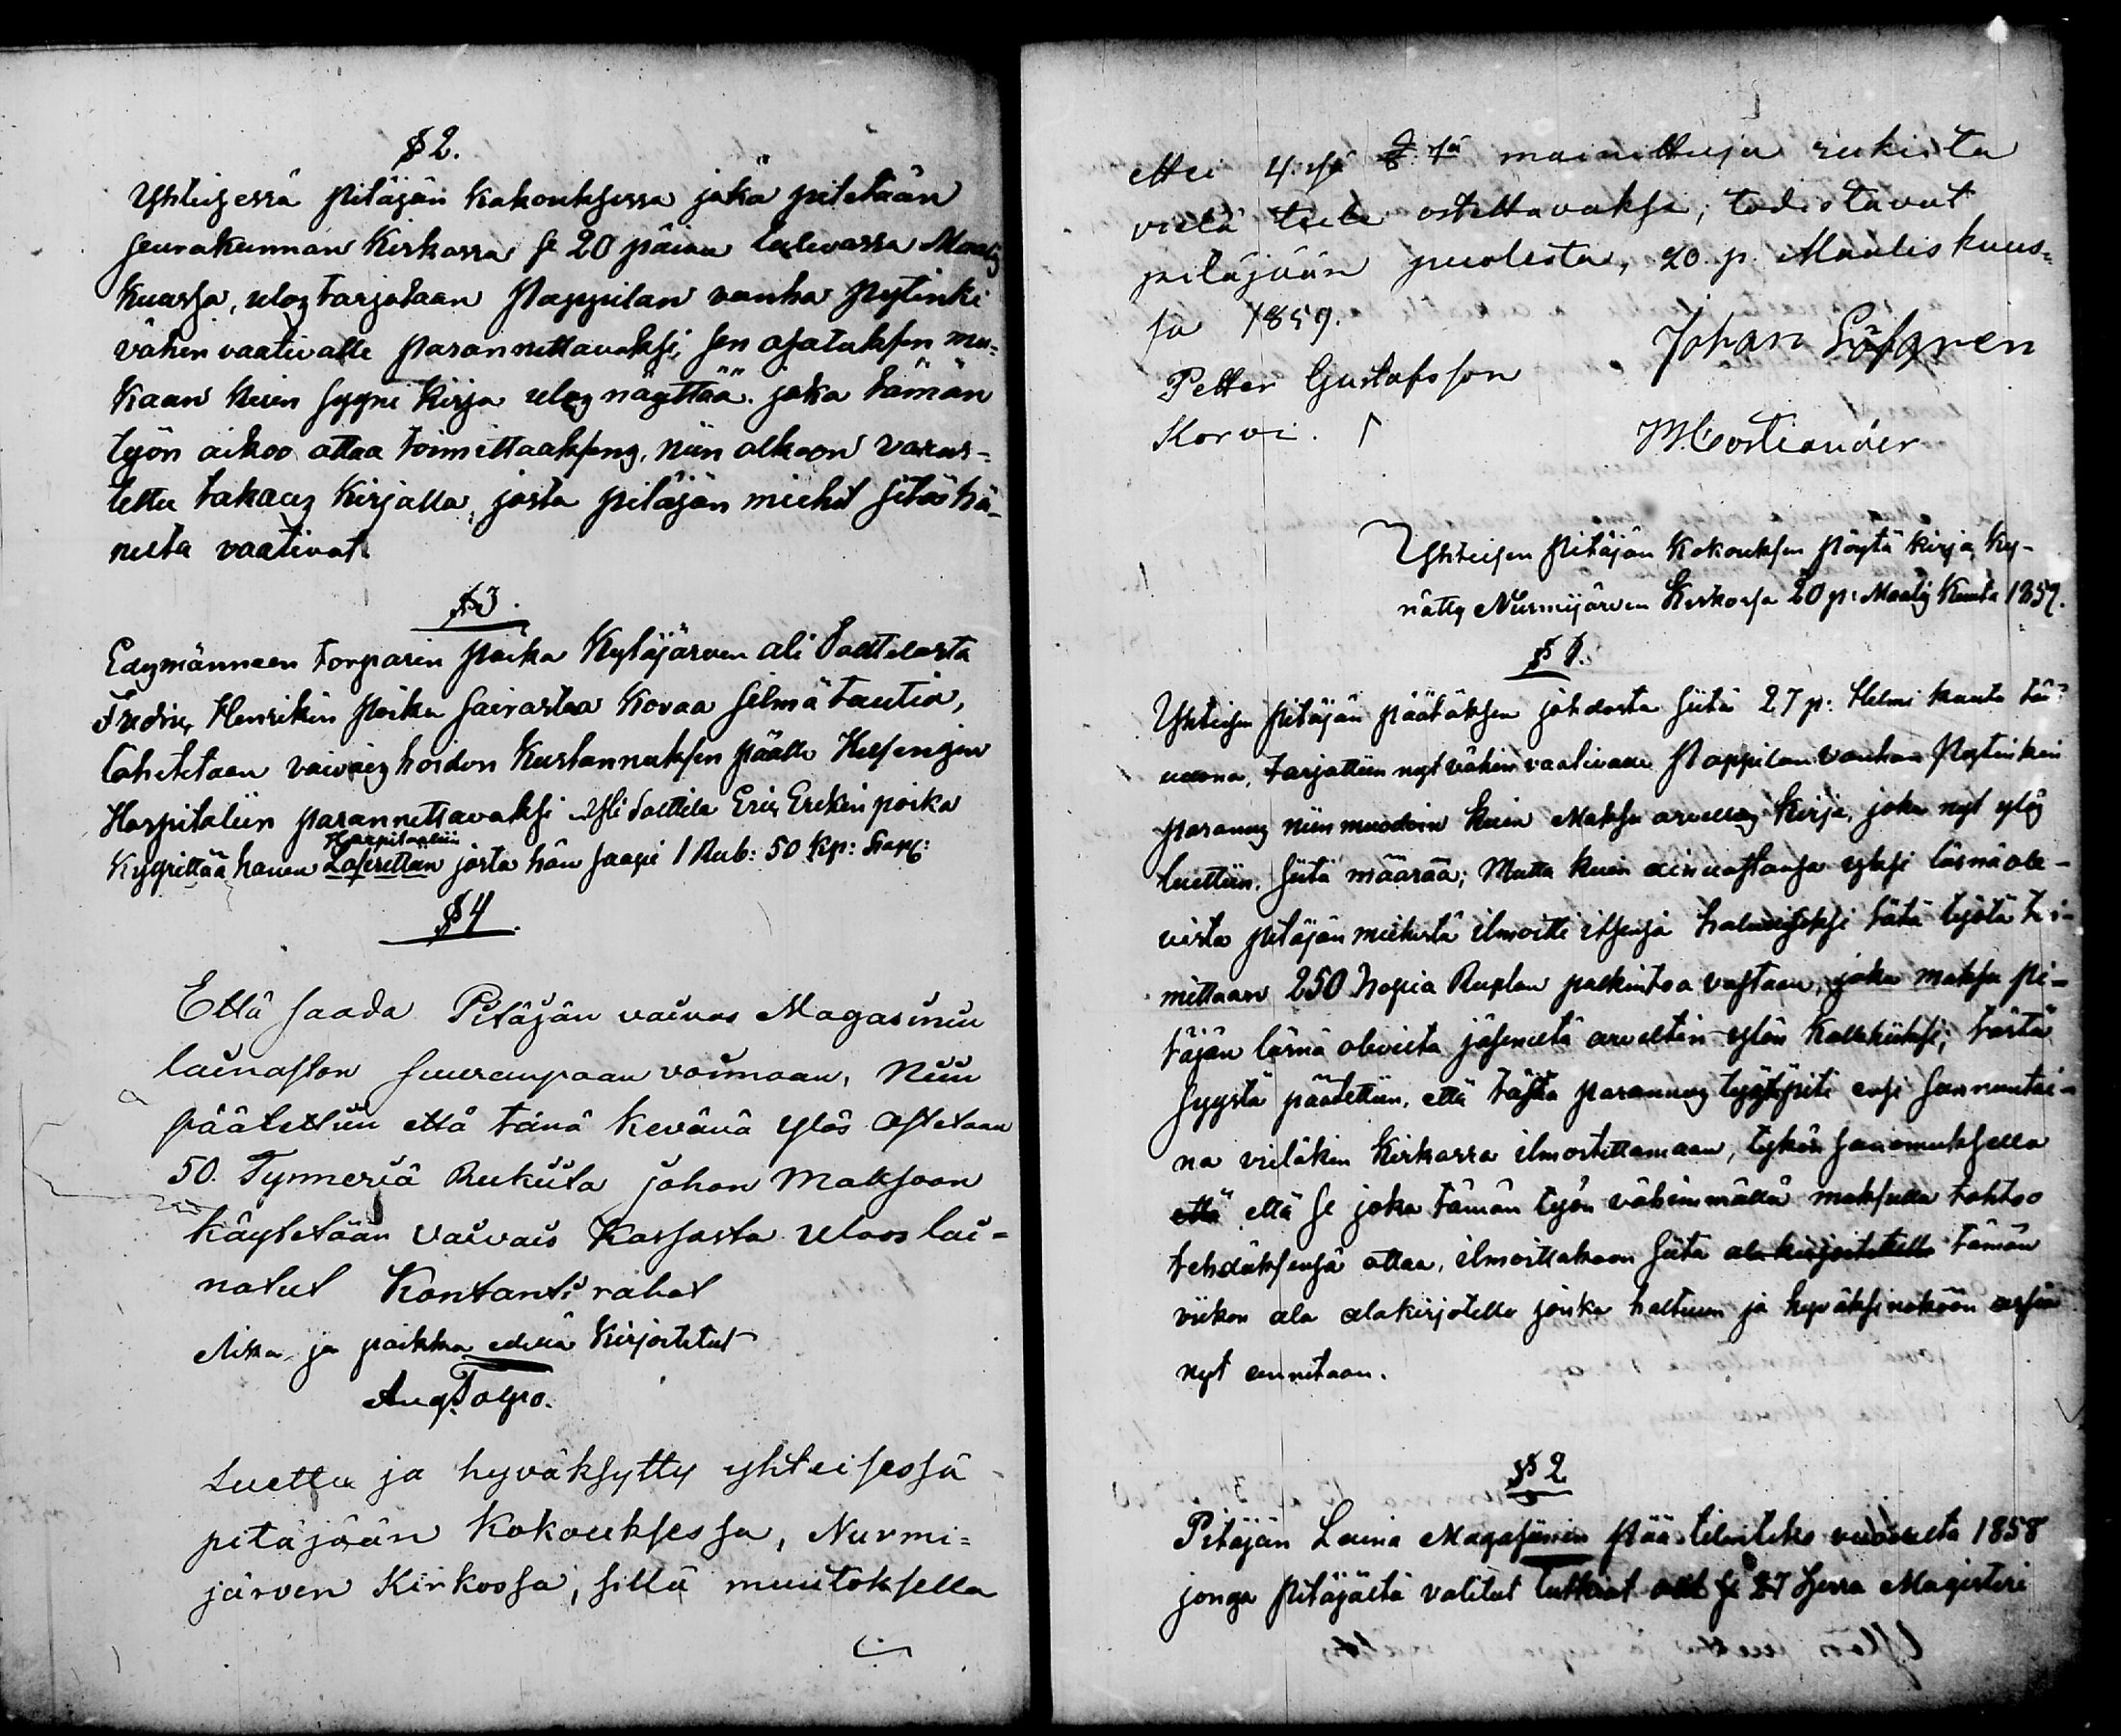 § 2.
Yhteisessä Pitäjän Kokouksessa joka pitetään
seurakunnan Kirkossa se 20 päivä tulevassa Maalis
Kuussa, ulos tarjotaan Pappilan vanha Pytinki
vähen vaativalle parannettavaksi, sen asatuksen mu-
kaan kuin syyni kirja ulos näyttää. joka tämän
työn aikoo ottaa toimittaaksens, niin olkoon varus-
tettu takaus Kirjalla, josta pitäjän miehet sitä hä-
neltä vaativat.
§ 3.
Edesmänneen torparin poika Kytäjärven ali Solttilasta
Fredric Henrikin poika sairastaa kovaa silmä tautia,
lähetetään vaivais hoidon Kustannuksen päälle Helsengin
Hospitaliin parannettavaksi Yli Solttila Eric Erikin poika
Hospitaaliin
Kyyrittää hänen Lasarettiin josta hän saapi 1 Rub: 50 kp: hop:
§ 4.
Että saada Pitäjän vaivas Magasinin
lainaston suurempaan voimaan, Niin
päätettiin että tänä kevänä ylös ostetaan
50. Tynneriä Rukiita johon Maksoon
käytetään Vaivais Kassasta uloos lai=
natut Kontanti rahat
Aika ja paikka edellä Kirjoitetut
Aug. Tolpo.
Luettu ja hyväksytty yhteisessä
pitäjään Kokouksessa, Nurmi=
järven Kirkossa, sillä muutoksella
ettei 4:ssä §:ssä mainittuja rukiita
vielä tule ostettavaksi; todistavat
pitäjään puolesta, 20. p. Maalis kuus=
sa 1859.
Johan Löfgren
Petter Gustafsson
Korvi.
Yhteisen Pitäjän Kokouksen Pöytä kirja, Ky-
nätty Nurmijärven Kirkossa 20 p: Maalis Kuuta 1859.
§ 1.
Yhteisen Pitäjän päätöksen johdosta siitä 27 p: Helmi kuuta tä
vuonna, tarjottiin nyt vähin vaativalle Pappilan vanhan Pytinkin
parannus niin muodoin kuin Maksu arvellus Kirja, joka nyt ylös
luettiin, siitä määrää; Mutta kuin ainuastansa yksi läsnä ole-
vista pitäjän miehistä ilmoitti itsensä halulliseksi tätä työtä toi-
mittaan 250 Hopia Ruplan palkintoa vastaan, joka maksu pi-
täjän läsnä olevista jäsenistä arveltin ylön kalliiksi; tästä
syystä päätettiin, että tästä parannus työstä piti ensi sunnuntai-
na vieläkin Kirkossa ilmoitettamaan, tykön sanomuksella
että että se joka tämän työn vähimmällä maksulla tahtoo
tehdäksensä ottaa, ilmoittakoon siitä alakirjoitetulle tämän
viikon ala alakirjotello jonka haltuun ja hyväksi näköön asia
nyt annetaan.
§ 2
Pitäjän Laina Magasinin Pää tilinteko vuodelta 1858
jonga Pitäjältä valitut tutkiat olit se 27 Herra Magisteri